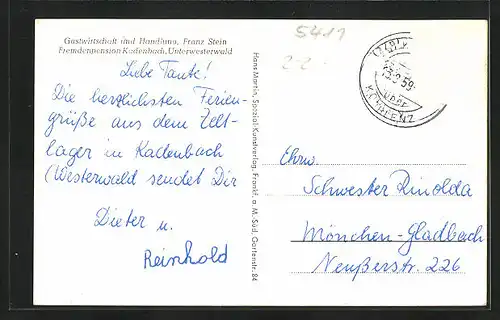 Gastwirtschaft und Handlung, Franz Stein
Fremdenpension Kadenbach, Unterwesterwald
Liebe Tante!
Die herzlichsten Ferien-
grüße aus dem Zelt-
lager in Kadenbach
(Westerwald sendet Dir
Dieter u.
Reinhold
Hans Martin, Spezial-Kunstverlag, Frankf. a. M.-Süd, Gartenstr. 84
5411
2-2-
59
KOBLENZ
Ehrw.
Schwester Rinolda
Mönchen-Gladbach
Neußerstr. 226